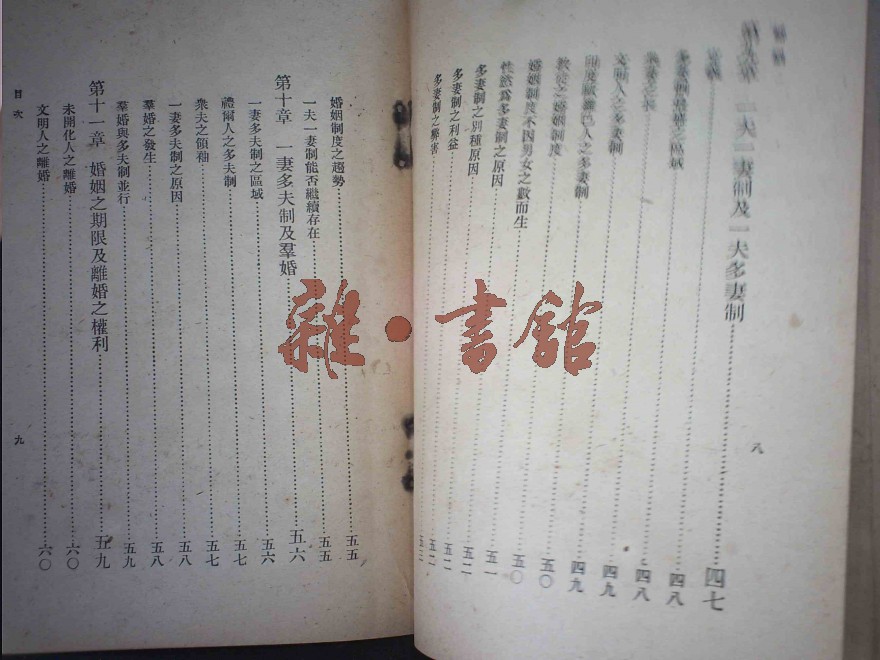 第九章 一夫一妻制及一夫多妻制……四七
多妻制……之區域……四八
……四八
文明人之多妻制……四九
印度歐羅巴人之多妻制……四九
教徒之婚姻制度……五〇
婚姻制度不因男女之數而生……五〇
性慾爲多妻制之原因……五一
多妻制之別種原因……五二
多妻制之利益……五二
多妻制之弊害……五三
八
婚姻制度之趨勢……五五
一夫一妻制能否繼續存在……五五
第十章 一妻多夫制及羣婚……五六
一妻多夫制之區域……五六
禮爾人之多夫制……五七
衆夫之領袖……五七
一妻多夫制之原因……五八
羣婚之發生……五八
羣婚與多夫制並行……五九
第十一章 婚姻之期限及離婚之權利……五九
未開化人之離婚……六〇
文明人之離婚……六〇
目次
九
雜·書館